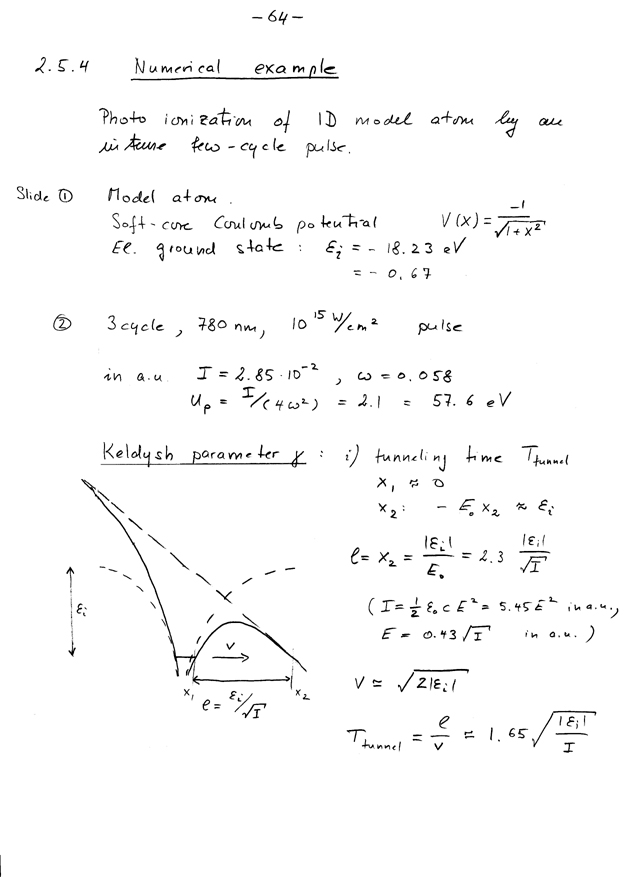 - 64 -
2.5.4 Numerical example
Photo ionization of 1D model atom by an
intense few-cycle pulse.
Slide ① Model atom.
Soft-core Coulomb potential V(x) = -1/√(1+x²)
El. ground state : ε_i = - 18.23 eV
= - 0.67
② 3 cycle, 780 nm, 10^15 W/cm² pulse
in a.u. I = 2.85·10^-2 , ω = 0.058
U_p = I/(4ω²) = 2.1 = 57.6 eV
Keldysh parameter γ : i) tunneling time T_tunnel
x_1 ≈ 0
x_2 : - E_o x_2 ≈ ε_i
ℓ = x_2 = |ε_i|/E_o = 2.3 |ε_i|/√I
( I = ½ ε_o c E² = 5.45 E² in a.u.,
E = 0.43 √I in a.u. )
v ≃ √(2|ε_i|)
T_tunnel = ℓ/v ≈ 1.65 √(|ε_i|/I)
ε_i
v
x_1 x_2
ℓ = ε_i/√I